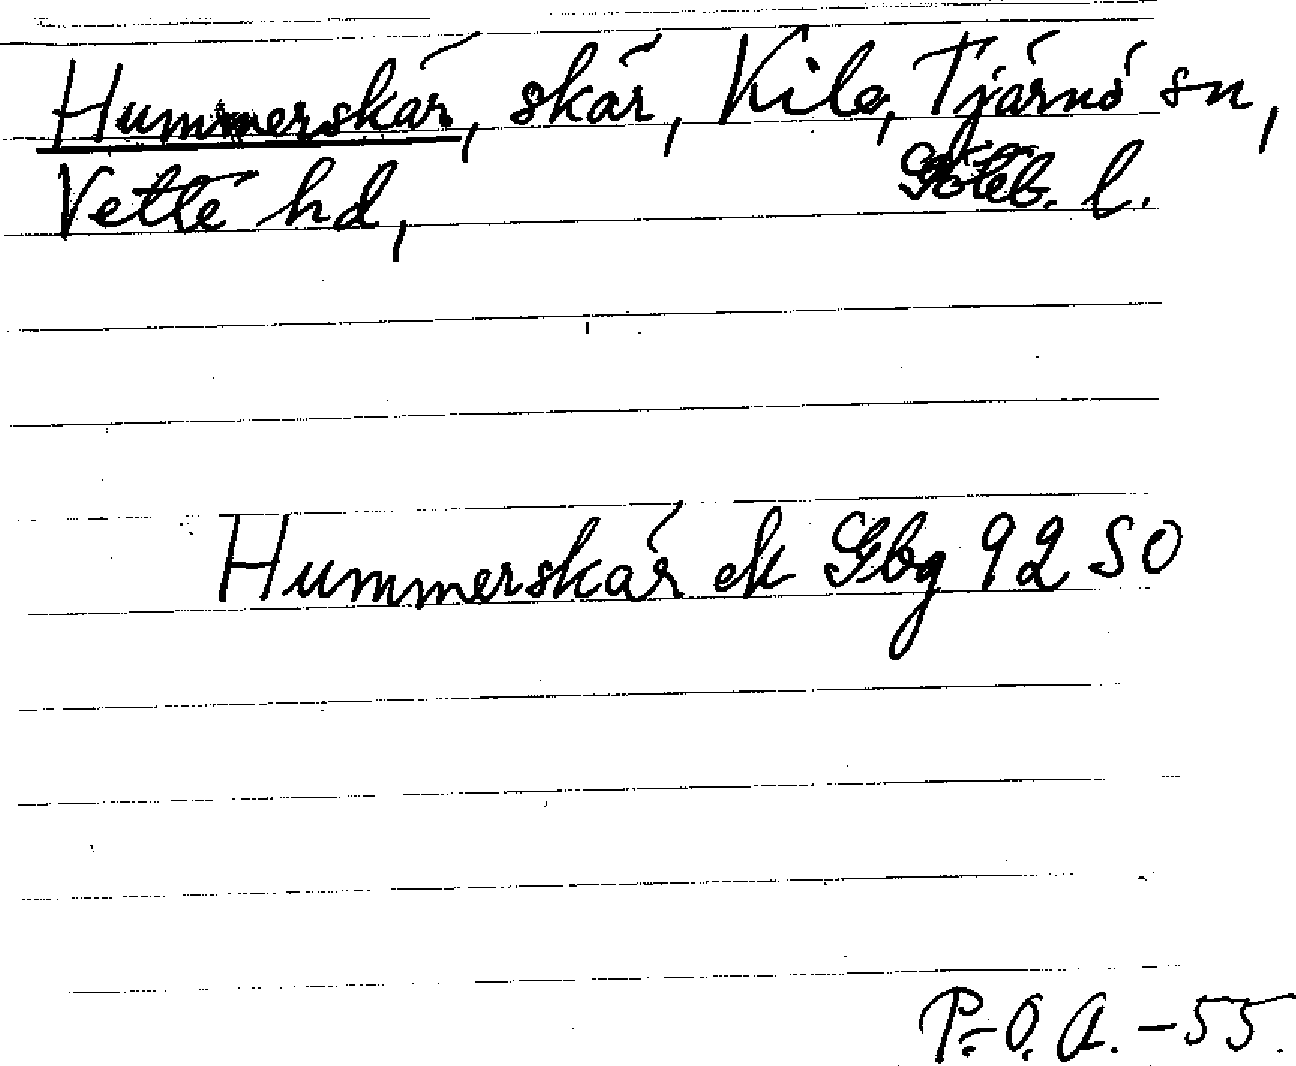 Hummerskär, skär, Kile, Tjärnö sn,
Vette hd, Göteb. l.
Hummerskär ek Gbg 92 SO
P.-O. A. - 55.